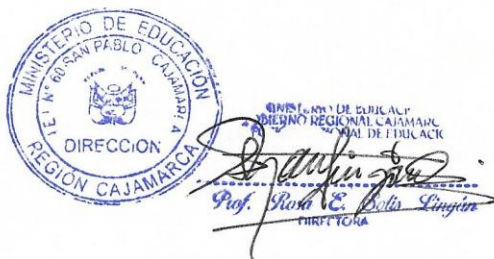 MINISTERIO DE EDUCACIÓN
I.E.I. N° 60-SAN PABLO CAJAMARCA
DIRECCION
REGIÓN CAJAMARCA
DE EDUCACI
REGIONAL CAJAMARC
DE EDUCACI
Prof. Rosa E. Solis Lingán
DIRECTORA